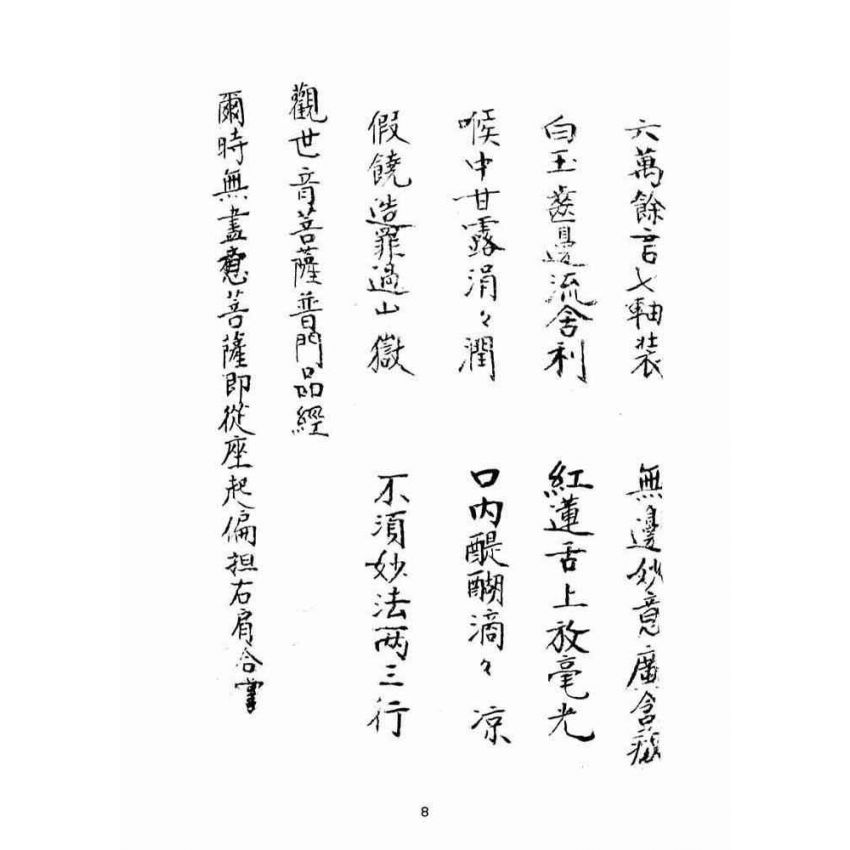 六萬餘言七軸装 無邊妙意廣含藏
白玉齒邊流舍利 紅蓮舌上放毫光
喉中甘露涓々潤 口内醍醐滴々凉
假饒造罪過山嶽 不須妙法两三行
觀世音菩薩普門品經
爾時無盡意菩薩即從座起偏担右肩合掌
8